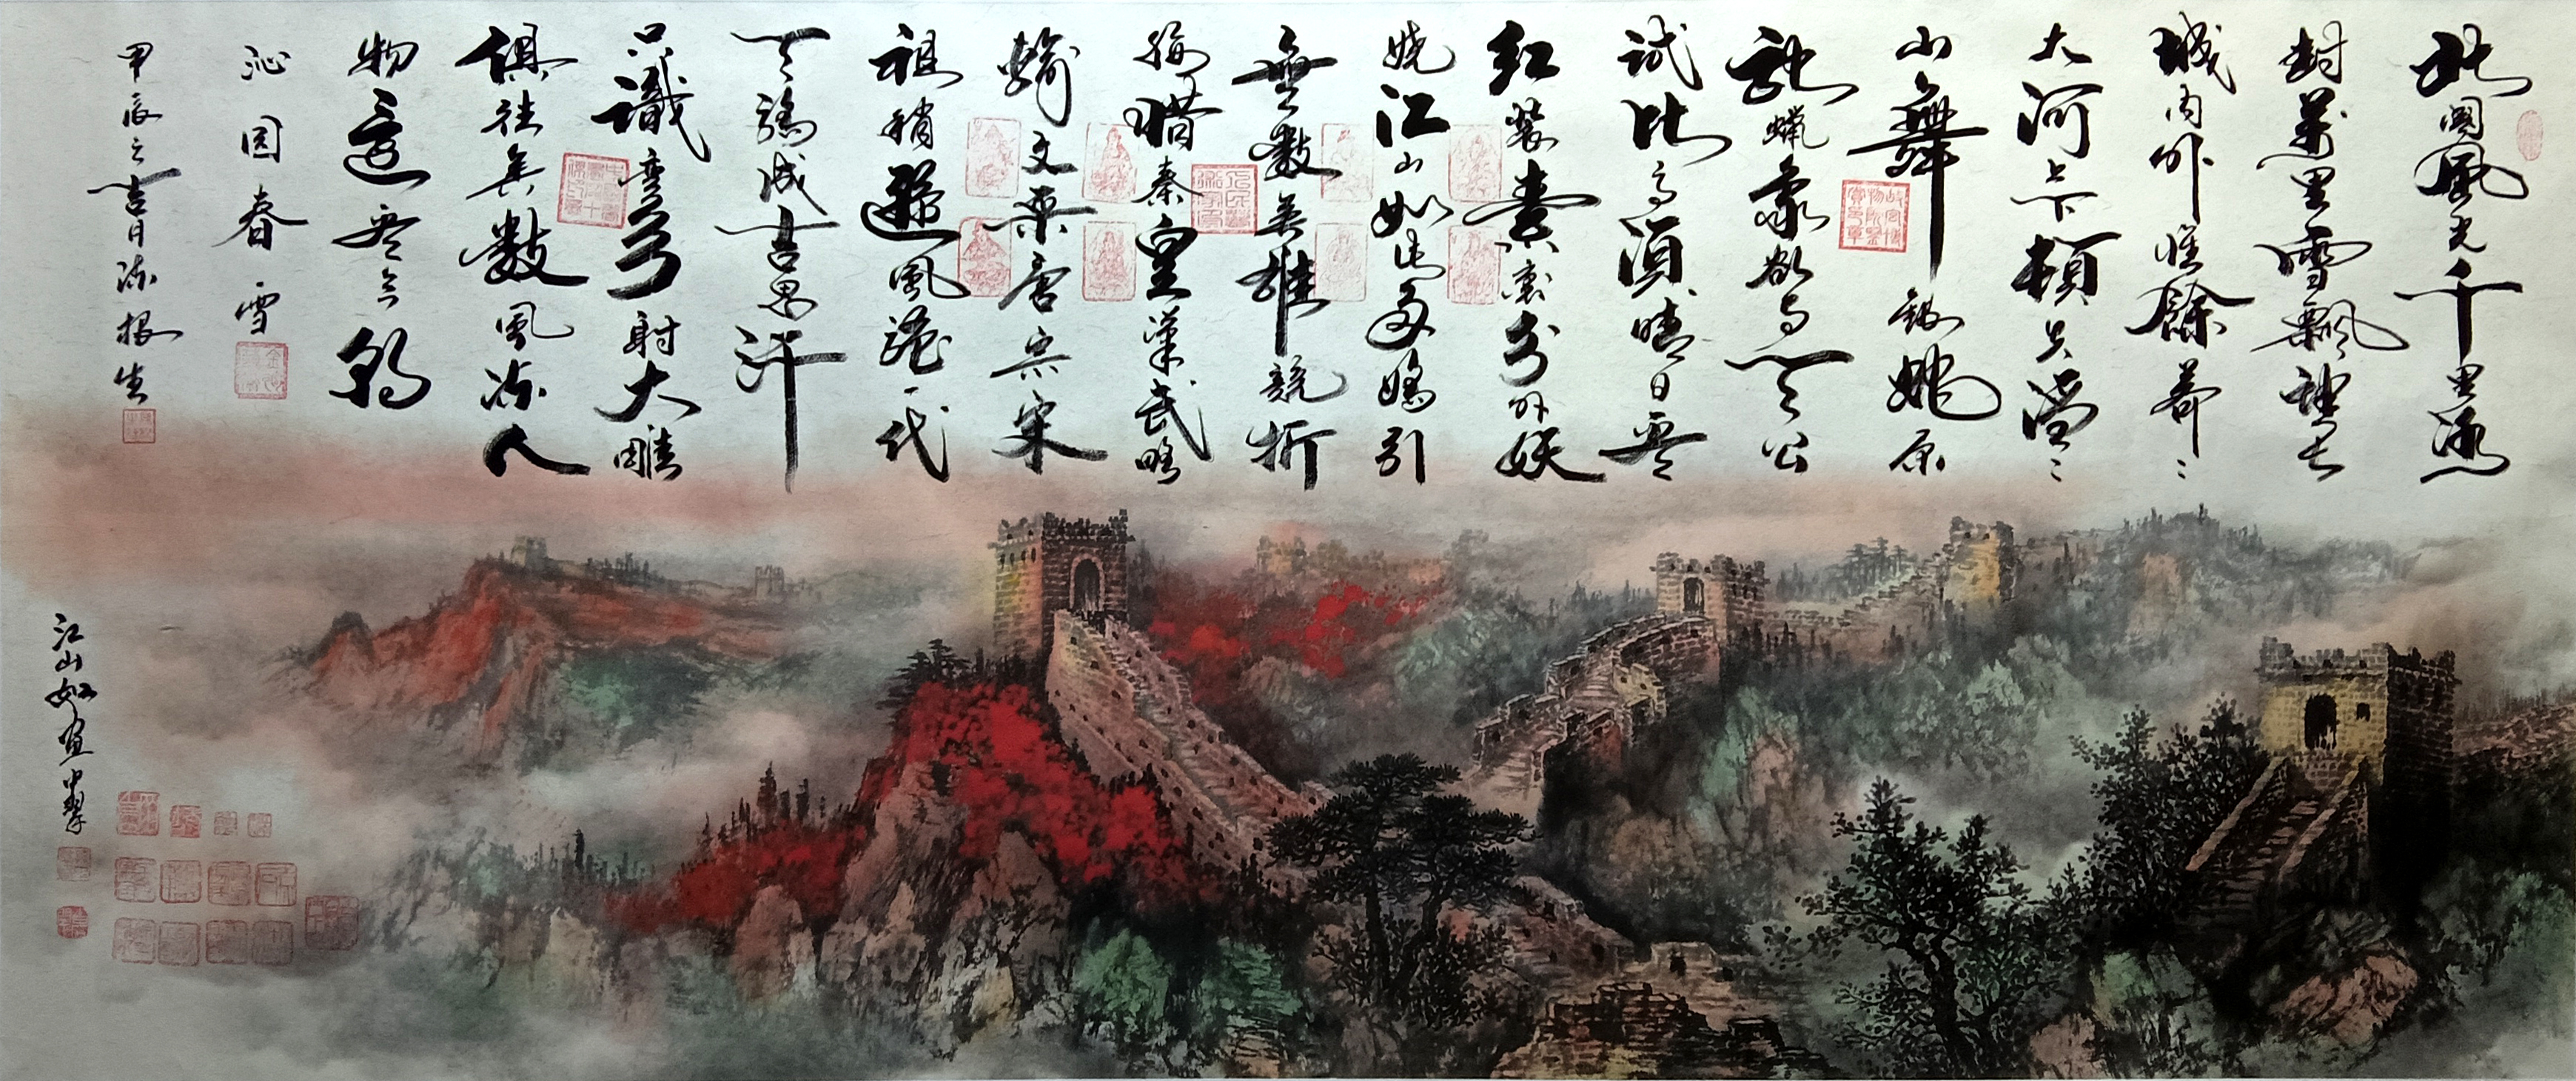 北國風光千里冰
封萬里雪飄望長
城内外惟餘莽〻
大河上下頓失滔〻
山舞銀蛇原
馳蠟象欲与天公
試比高須晴日看
红裝素裹分外妖
娆江山如此多嬌引
無數英雄競折
腰惜秦皇漢武略
輸文采唐宗宋
祖稍遜風騷一代
天驕成吉思汗
只識彎弓射大雕
俱往矣數風流人
物還看今朝
沁园春雪
甲辰之吉日陈根生
江山如画